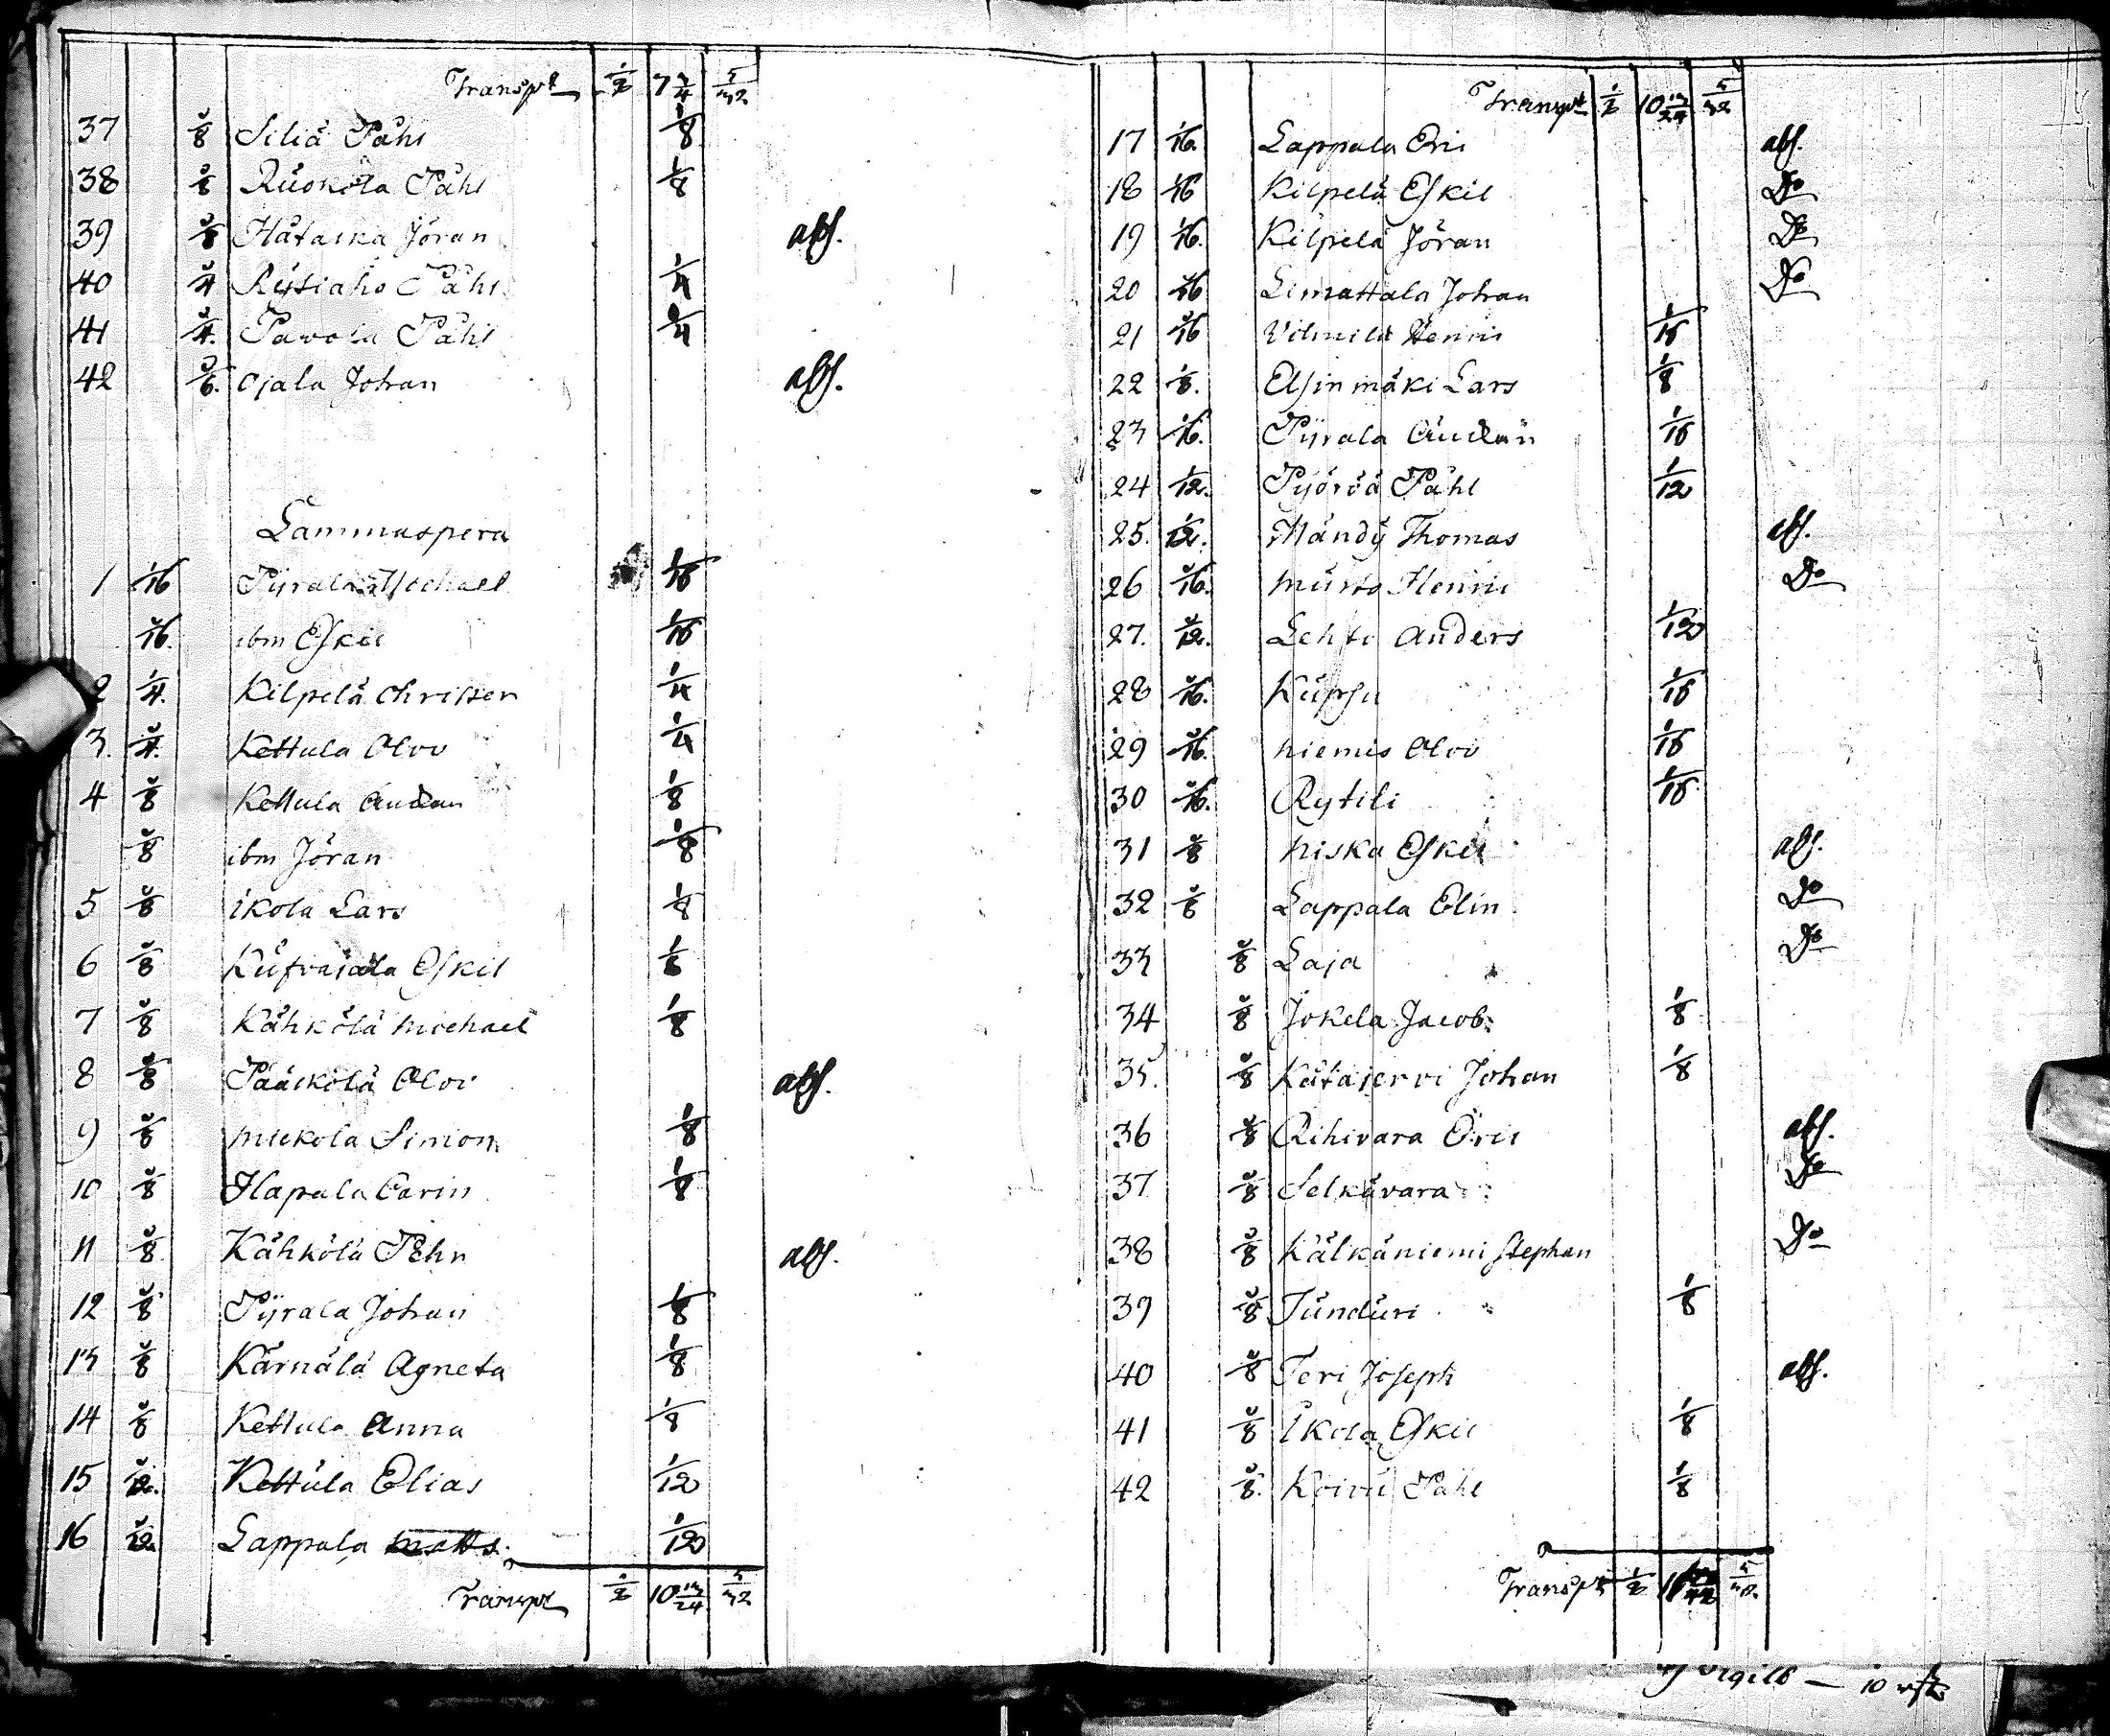 Transpt 1/2 7 3/4 5/32
37 1/8 Siliä Påhl 1/8
38 1/8 Ruokola Påhl 1/8
39 1/8 Hätaska Jöran abs.
40 1/4 Rytiaho Påhl 1/4
41 1/4 Pavola Påhl 1/4
42 1/6 Ojala Johan abs.
Lammasperä
1 1/16 Pyrala Michael 1/16
1/16 ibm Eskil 1/16
2 1/4 Kilpelä Christer 1/4
3 1/4 Kettula Olov 1/4
4 1/8 Kettula Audun 1/8
1/8 ibm Jöran 1/8
5 1/8 Ikola Lars 1/8
6 1/8 Eskil 1/8
7 1/8 Kähkölä Michael 1/8
8 1/8 Pääskölä Olov abs.
9 1/8 Mickola Simon 1/8
10 1/8 Hapala Carin 1/8
11 1/8 Kähkölä Pehr abs.
12 1/8 Pyrala Johan 1/8
13 1/8 Kärnälä Agneta 1/8
14 1/8 Kettula Anna 1/8
15 1/12 Kettula Elias 1/12
16 1/12 Lappala Matts 1/12
Transpt 1/2 10 13/24 5/32
Transpt 1/2 10 13/24 5/32
17 1/16 Lappala Eric abs.
18 1/16 Kilpelä Eskil Do
19 1/16 Kilpelä Jöran Do
20 1/16 Limattala Johan Do
21 1/16 Vilmilä Henric 1/16
22 1/8 Elsinmäki Lars 1/8
23 1/16 Pyrala Audun 1/16
24 1/12 Pyöröä Påhl 1/12
25 1/12 Mändy Thomas abs.
26 1/16 Murto Henric Do
27 1/12 Lehto Anders 1/12
28 1/16 Kupsu 1/16
29 1/16 Niemis Olov 1/16
30 1/16 Rytili 1/16
31 1/8 Niska Eskil abs.
32 1/8 Lappala Elin Do
33 1/8 Laja Do
34 1/8 Jokela Jacob 1/8
35 1/8 Katajervi Johan 1/8
36 1/8 Rihivara Eric abs.
37 1/8 Selkävara Do
38 1/8 Kälkäniemi Stephan Do
39 1/8 Tunduri 1/8
40 1/8 Teri Joseph abs.
41 1/8 Ikola Eskil 1/8
42 1/8 Koivu Påhl 1/8
Transpt 1/2 5/32